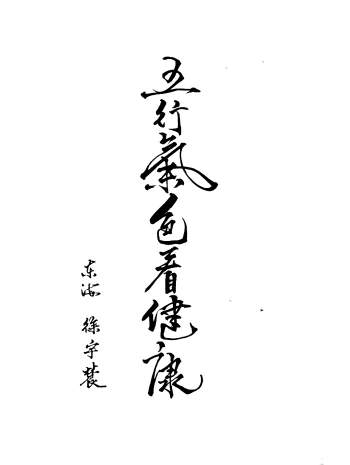 五行氣色看健康
东海 徐宇辳